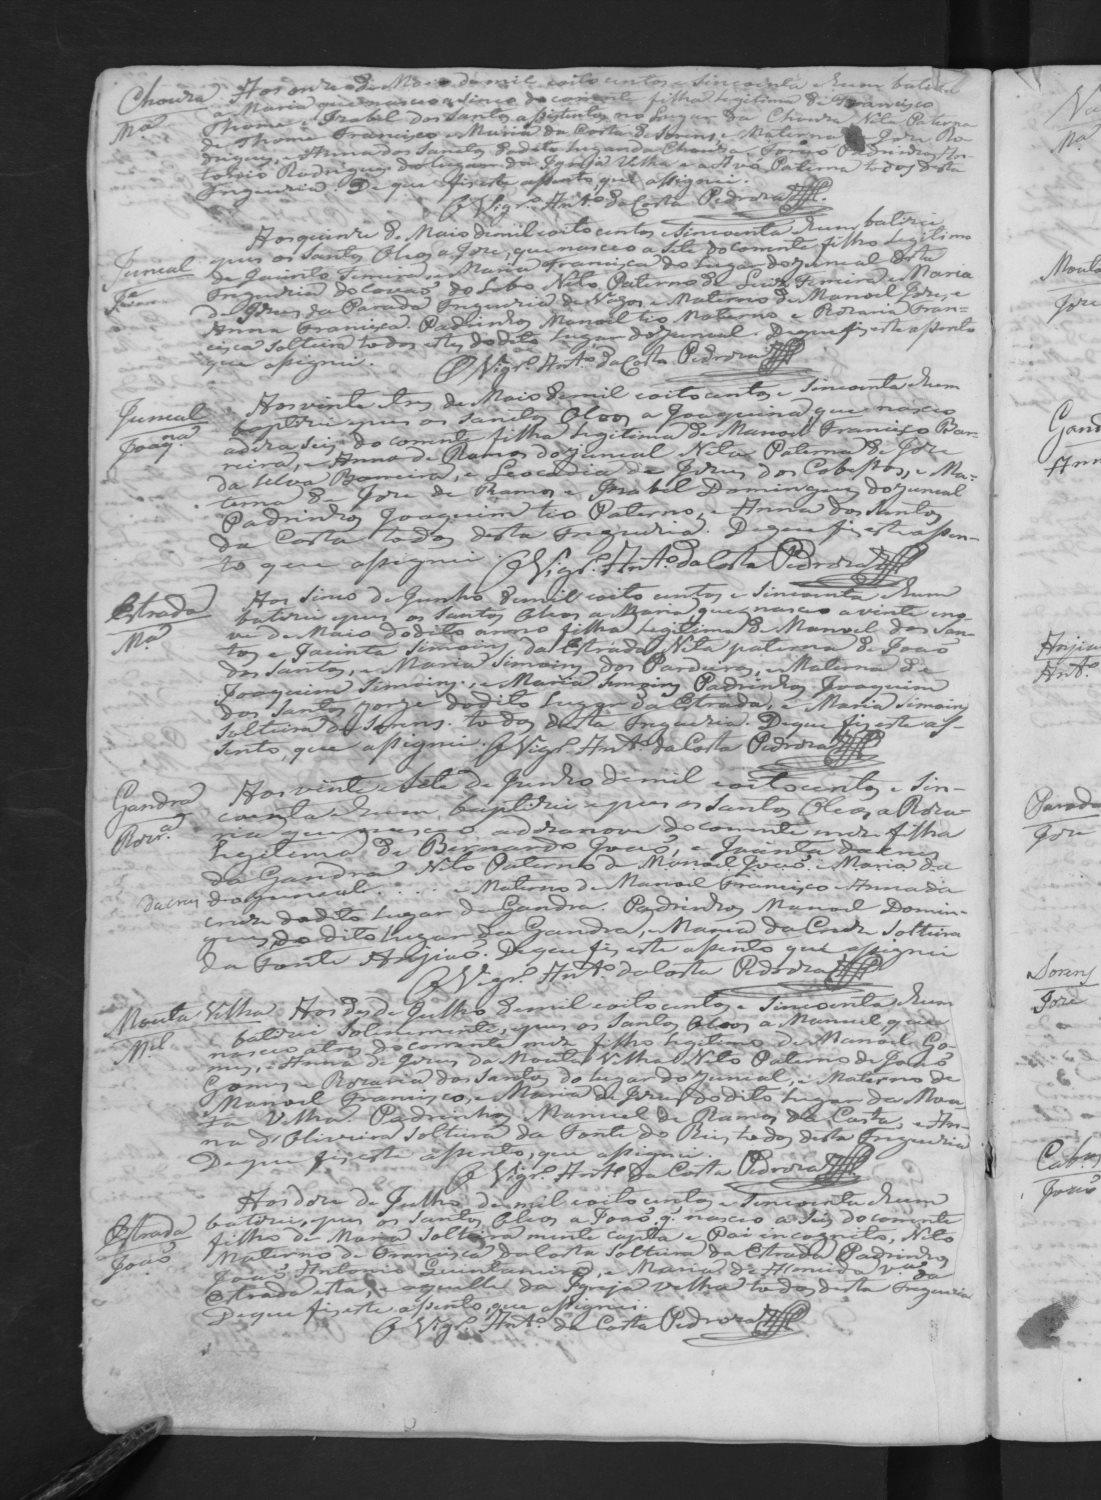 Choura Aos onze de Maio de mil oito centos e sincoenta e hum baptizei
Ma a Maria que nasceo a sinco do corrente filha legitima de Francisco
Thome e Izabel dos Santos assistentes no Lugar da Choura Neta Paterna
de Thome Francisco e Maria da Costa de Sorens e Materna de Joze Ro-
drigues, e Anna dos Santos do dito lugar da Choura Padrinhos An-
tonio Rodrigues do lugar da Igreja Velha e a Avó Paterna todos desta
Freguezia. De que fiz este assento, que assignei.
O Vigr.o Ant.o da Costa Pedroza
Aos quinze de Maio de mil oito centos e sincoenta e hum baptizei
Junceal e pus os Santos Oleos a Joze, que nasceo a sete do corrente filho legitimo
Joze de Jacinto Ferreira e Maria Francisca do Lugar do Junceal desta
Freguezia do Covaõ do Lobo Neto Paterno de Luis Ferreira e Maria
de Jezus da Parada Freguezia de Vagos e Materno de Manoel Joze, e
Anna Francisca. Padrinhos Manoel tio Materno e Rozaria Fran-
cisca solteira todos estes do dito Lugar do Junceal. De que fiz este assento
que assignei.
O Vigr.o Ant.o da Costa Pedroza
Junceal Aos vinte e tres de Maio de mil oito centos e sincoenta e hum
Joaq.na baptizei e pus os Santos Oleos a Joaquina que nasceo
a dezaseis do corrente filha legitima de Manoel Francisco Bar-
reira, e Anna de Ramos do Junceal Neta Paterna de Joze
da Silva Barreira, e Leocadia de Jezus dos Cabessos, e Ma-
terna de Joze de Ramos e Izabel Domingues do Junceal
Padrinhos Joaquim tio Paterno, e Anna dos Santos
da Costa todos desta Freguezia. De que fiz este assen-
to que assignei. O Vigr.o Ant.o da Costa Pedroza
Estrada Aos sinco de Junho de mil oito centos e sincoenta e hum
Ma baptizei e pus os Santos Oleos a Maria que nasceo a vinte e no-
ve de Maio do dito anno filha legitima de Manoel dos San-
tos e Jacinta Simoins da Estrada Neta paterna de Joaõ
dos Santos, e Maria Simoins dos Pardieiros, e Materna de
Joaquim Simoins, e Maria Simoins Padrinhos Joaquim
dos Santos Jorge do dito Lugar da Estrada, e Maria Simoins
solteira de Sorens todos desta Freguezia. De que fiz este as-
sento, que assignei. O Vigr.o Ant.o da Costa Pedroza
Gandra Aos vinte e sete de Junho de mil oito centos e sin-
Roza coenta e hum, baptizei e pus os Santos Oleos a Roza-
ria que nasceo a dezanove do corrente mez filha
legitima de Bernardo Joaõ, e Jacinta da Cruz
da Gandra Neta Paterno de Manoel Joaõ e Maria da
da Cruz do Junceal . . . . e Materno de Manoel Francisco e Anna da
Cruz do dito Lugar da Gandra. Padrinhos Manoel Domin-
gues do dito lugar da Gandra, e Maria da Cruz solteira
da Fonte Anjiaõ. De que fiz este assento que assignei
O Vigr.o Ant.o da Costa Pedroza
Mouta Velha Aos des de Julho de mil oito centos e sincoenta e hum
M.el baptizei solenemente, e pus os Santos Oleos a Manuel que
nasceo a tres do corrente mez filho legitimo de Manoel Go-
mes, e Anna de Jezus da Mouta Velha Neto Paterno de Joaõ
Gomes e Rozaria dos Santos do lugar do Junceal, e Materno de
Manoel Francisco, e Maria de Jezus do dito lugar da Mou-
ta Velha. Padrinhos Manuel de Ramos da Costa, e An-
na d'Oliveira solteira da Fonte do Rei todos desta Freguezia
De que fiz este assento, que assignei.
O Vigr.o Ant.o da Costa Pedroza
Aos doze de Julho de mil oito centos e sincoenta e hum
Estrada baptizei, e pus os Santos Oleos a Joaõ q. nasceo a seis do corrente
Joaõ filho de Maria solteira mente capta e Pai incognito, Neto
Materno de Francisca da Costa solteira da Estrada Padrinhos
Joaõ Antonio Quintaneiro, e Maria de Almeida v.a da
Estrada esta, e aquelle da Igreja velha todos desta Freguezia
De que fiz este assento que assignei.
O Vigr.o Ant.o da Costa Pedroza
Ma
Mouta
Joze
Gand
Anna
Anjiaõ
Ant.o
Parada
Joze
Sorens
Joze
Cab
Joaõ